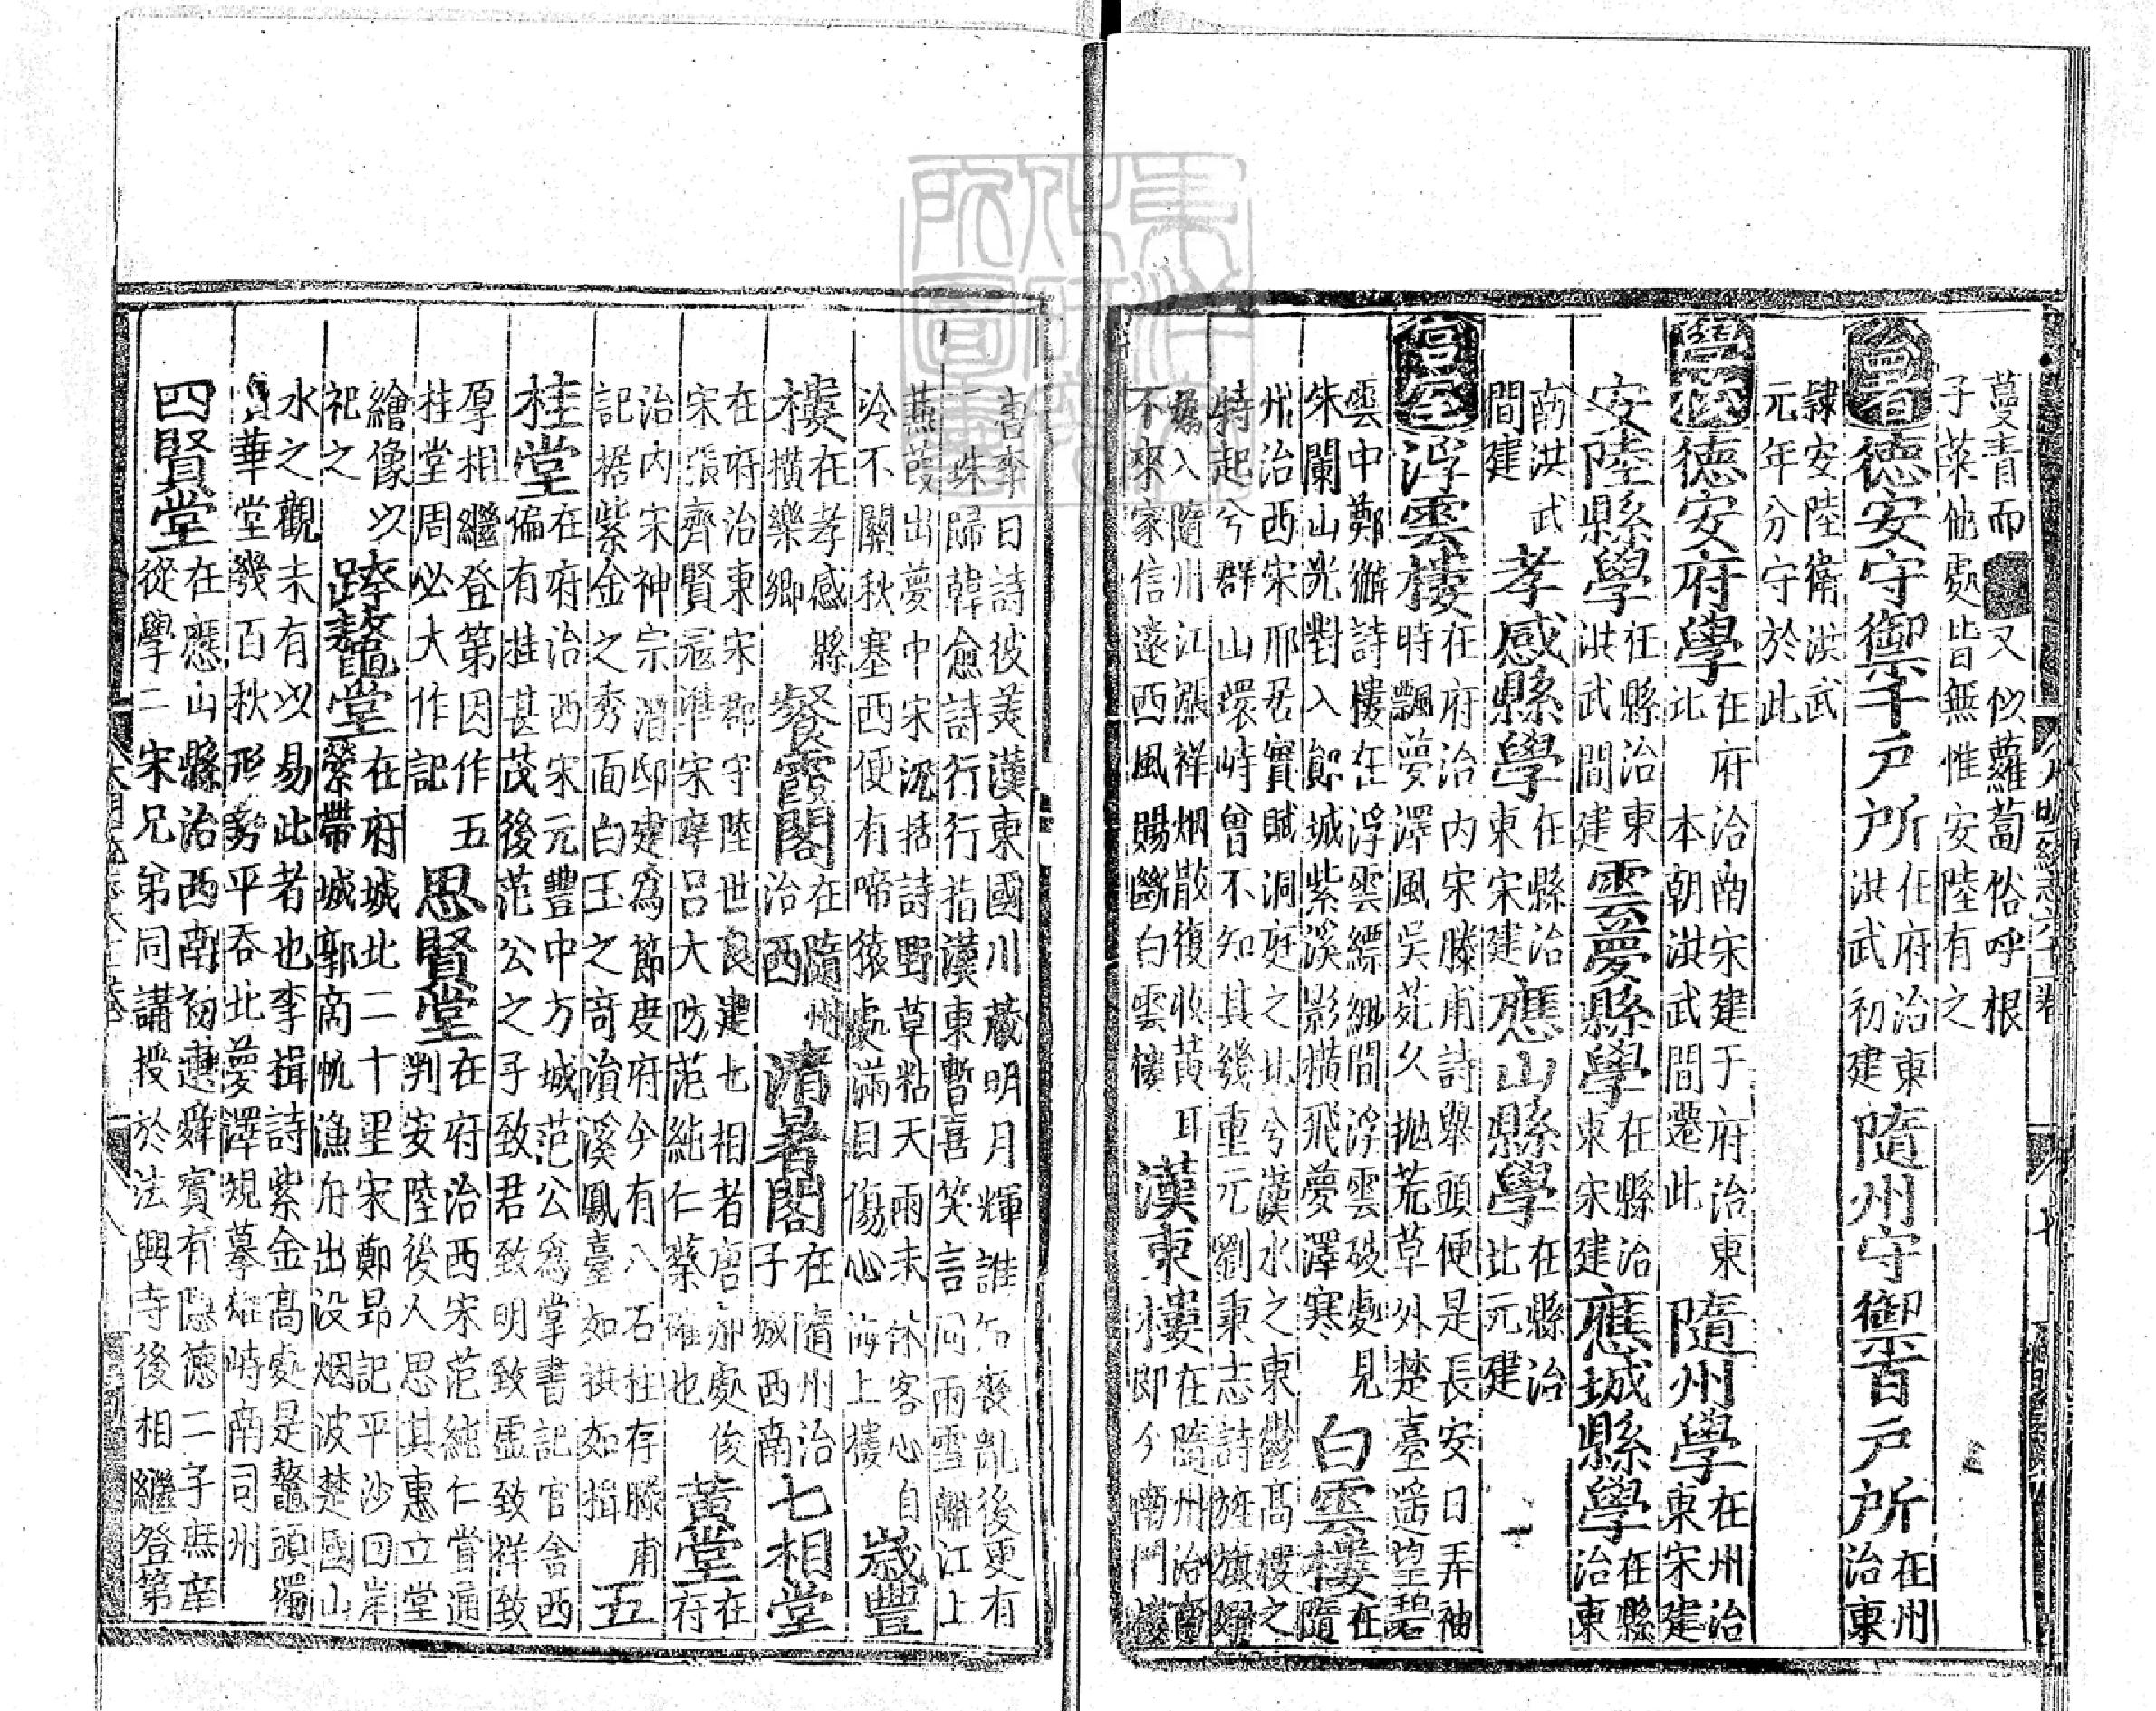 蔓青而又似蘿蔔俗呼根
子菜他處皆無惟安陸有之
公署 德安守禦千戶所 在府治東洪武初建 隨州守禦百戶所 在州治東
隸安陸衛洪武
元年分守於此
學校 德安府學 在府治南宋建于府治東北 本朝洪武間遷此 隨州學 在州治東宋建
安陸縣學 在縣治東洪武間建 雲夢縣學 在縣治東宋建 應城縣學 在縣治東
南洪武間建 孝感縣學 在縣治東宋建 應山縣學 在縣治北元建
宮室 浮雲樓 在府治內宋滕甫詩舉頭便是長安日弄袖
時飄夢澤風吳苑久拋荒草外楚臺遙望碧
雲中鄭獬詩樓在浮雲縹緲間浮雲破處見
朱闌山光對入鄖城紫溪影橫飛夢澤寒 白雲樓 在隨
州治西宋邢居實賦洞庭之北兮漢水之東鬱高樓之
特起兮群山環峙曾不知其幾重元劉秉志詩旌旗
入隨州江漲祥烟散復收黃耳
不來家信遠西風賜斷白雲樓 漢東樓 在隨州治南即今南門樓
喜李日詩彼美漢東國川藏明月輝誰知喪亂後更有
一珠歸韓愈詩行行指漢東暫喜笑言同雨雪離江上
蒹葭出夢中宋沈括詩野草粘天雨未休客心自
冷不關秋塞西便有啼猿處滿目傷心海上樓 歲豐
樓 在孝感縣橫樂鄉 餐霞閣 在隨州治西 清暑閣 在隨州治子城西南 七相堂
在府治東宋郡守陸世良建七相者唐郝處俊
宋張齊賢寇準宋庠呂大防范純仁蔡確也 黃堂 在府
治內宋神宗潛邸建為節度府今有八石柱存滕甫
記据紫金之秀面白玉之奇溳溪鳳臺如拱如揖 五
桂堂 在府治西宋元豐中方城范公為掌書記官舍西
偏有桂甚茂後范公之子致君致明致虛致祥致
厚相繼登第因作五
桂堂周必大作記 思賢堂 在府治西宋范純仁嘗通
判安陸後人思其惠立堂
繪像以祀之 跨鼇堂 在府城北二十里宋鄭昂記平沙回岸
縈帶城郭商帆漁舟出沒烟波楚國山
水之觀未有以易此者也李揖詩紫金高處是鼇頭獨
華堂發百秋形勢平吞北夢澤規摹雄時南司州
四賢堂 在應山縣治西南初連舜賓有隱德二子庶庠
從學二宋兄弟同講授於法興寺後相繼登第